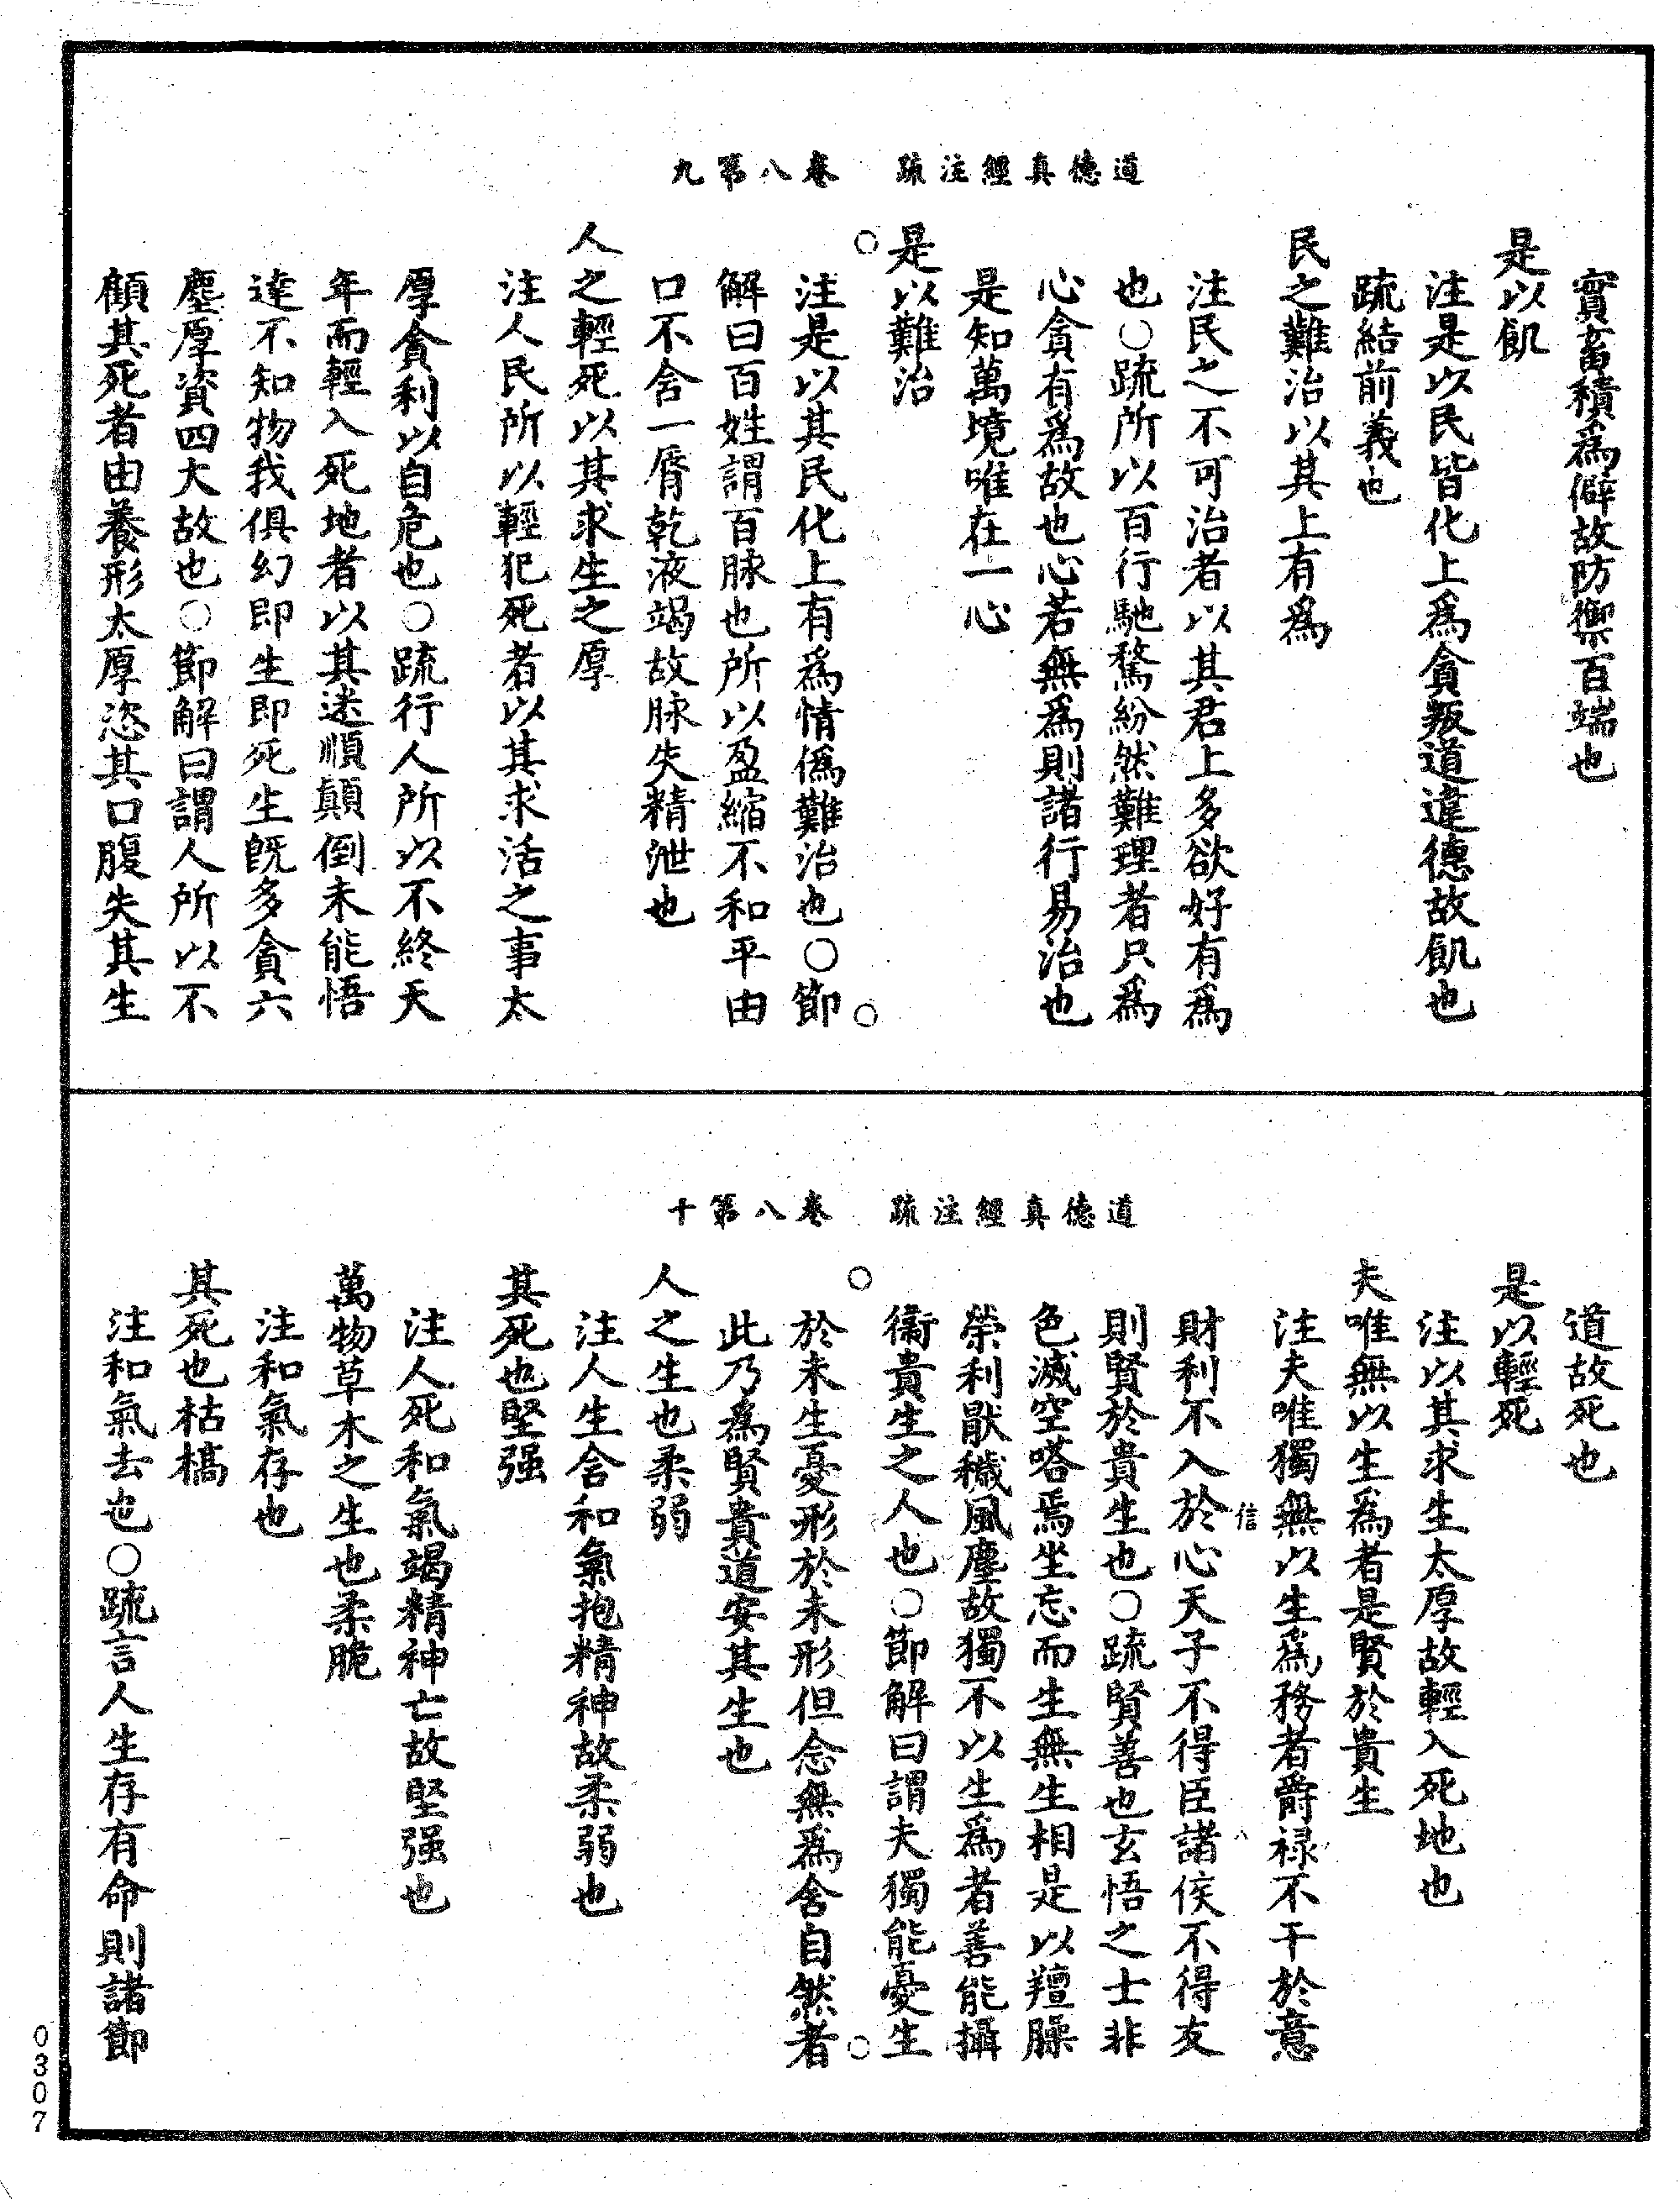 道德真經注疏　卷八第九
實畜積爲僻故防禦百端也
是以飢
注是以民皆化上爲貪叛道違德故飢也
疏結前義也
民之難治以其上有爲
注民之不可治者以其君上多欲好有爲
也○疏所以百行馳騖紛然難理者只爲
心貪有爲故也心若無爲則諸行易治也
是知萬境唯在一心
是以難治
○　○
注是以其民化上有爲情僞難治也○節
解曰百姓謂百脉也所以盈縮不和平由
口不含一脣乾液竭故脉失精泄也
人之輕死以其求生之厚
注人民所以輕犯死者以其求活之事太
厚貪利以自危也○疏行人所以不終天
年而輕入死地者以其迷順顛倒未能悟
達不知物我俱幻即生即死生旣多貪六
塵厚資四大故也○節解曰謂人所以不
顧其死者由養形太厚恣其口腹失其生
道德真經注疏　卷八第十
道故死也
是以輕死
注以其求生太厚故輕入死地也
夫唯無以生爲者是賢於貴生
注夫唯獨無以生爲務者爵祿不干於意
信　八
財利不入於心天子不得臣諸侯不得友
則賢於貴生也○疏賢善也玄悟之士非
色滅空嗒焉坐忘而生無生相是以羶臊
榮利猒穢風塵故獨不以生爲者善能攝
衞貴生之人也○節解曰謂夫獨能憂生
○　○
於未生憂形於未形但念無爲含自然者
此乃爲賢貴道安其生也
人之生也柔弱
注人生含和氣抱精神故柔弱也
其死也堅强
注人死和氣竭精神亡故堅强也
萬物草木之生也柔脆
注和氣存也
其死也枯槁
注和氣去也○疏言人生存有命則諸節
0307